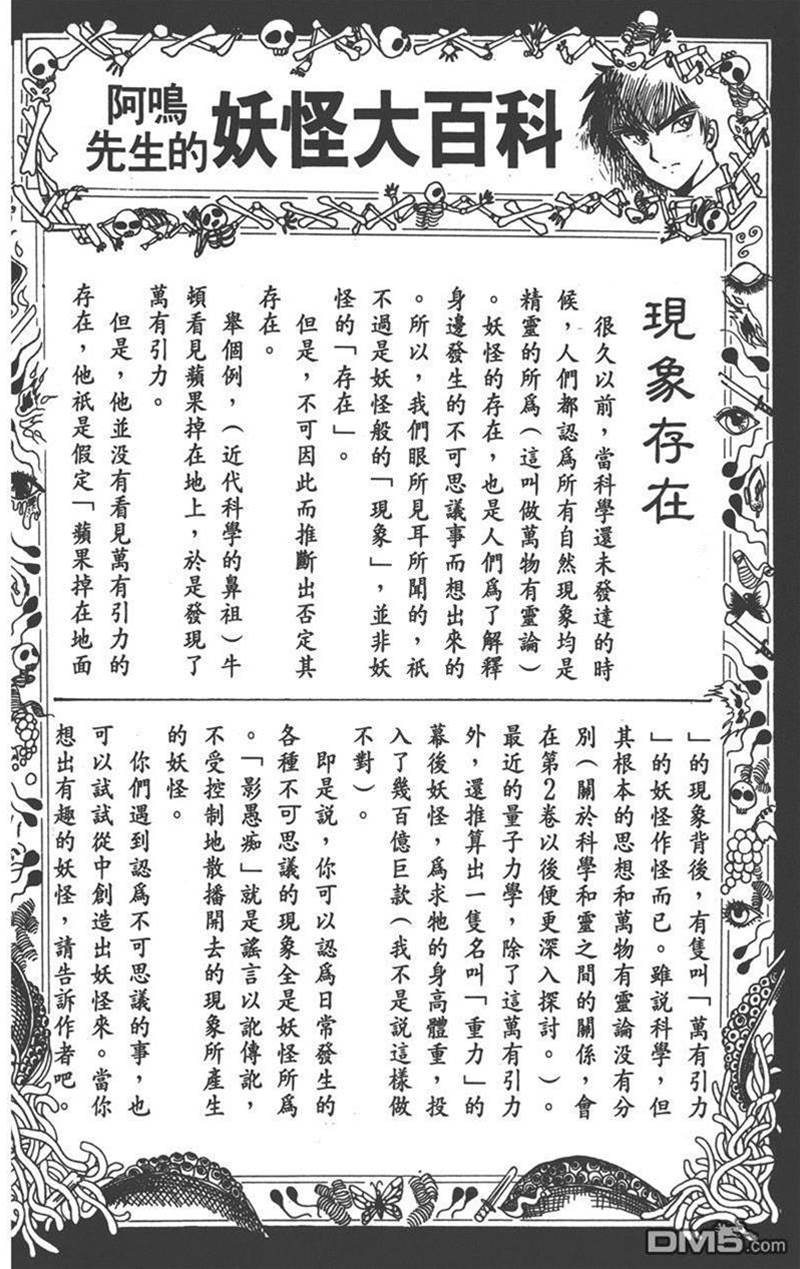 阿鳴
先生的
妖怪大百科
現象存在
很久以前，當科學還未發達的時
候，人們都認爲所有自然現象均是
精靈的所爲（這叫做萬物有靈論）
。妖怪的存在，也是人們爲了解釋
身邊發生的不可思議事而想出來的
。所以，我們眼所見耳所聞的，祇
不過是妖怪般的「現象」，並非妖
怪的「存在」。
但是，不可因此而推斷出否定其
存在。
舉個例，（近代科學的鼻祖）牛
頓看見蘋果掉在地上，於是發現了
萬有引力。
但是，他並没有看見萬有引力的
存在，他祇是假定「蘋果掉在地面
」的現象背後，有隻叫「萬有引力
」的妖怪作怪而已。雖說科學，但
其根本的思想和萬物有靈論没有分
別（關於科學和靈之間的關係，會
在第2卷以後便更深入探討。）。
最近的量子力學，除了這萬有引力
外，還推算出一隻名叫「重力」的
幕後妖怪，爲求牠的身高體重，投
入了幾百億巨款（我不是說這樣做
不對）。
即是說，你可以認爲日常發生的
各種不可思議的現象全是妖怪所爲
。「影愚痴」就是謠言以訛傳訛，
不受控制地散播開去的現象所產生
的妖怪。
你們遇到認爲不可思議的事，也
可以試試從中創造出妖怪來。當你
想出有趣的妖怪，請告訴作者吧。
DM5.com